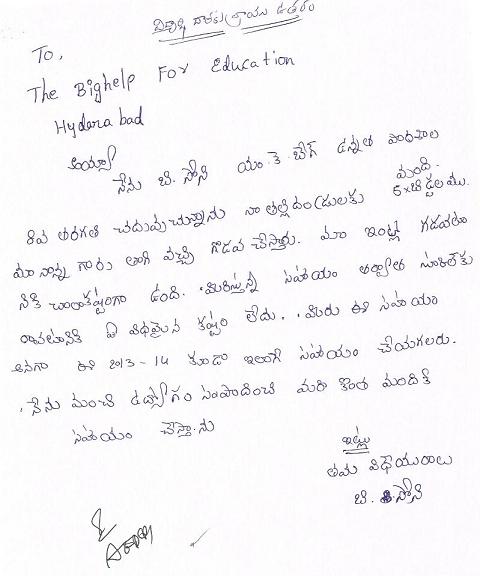 విద్యార్థి దాతకు వ్రాయు ఉత్తరం
To,
The Bighelp For Education
Hyderabad
అయ్యా
నేను బి. సోని యం. కె. బేగ్ ఉన్నత పాఠశాల
8వ తరగతి చదువుచున్నాను నా తల్లిదండ్రులకు 5 మంది. బిడ్డలము.
మా నాన్న గారు తాగి వచ్చి గొడవ చేస్తారు. మా ఇంట్లో గడవటా
నికి చాలాకష్టంగా ఉంది. మీరిస్తున్న సహాయం తర్వాత స్కూలుకు
రావటానికి ఏ విధమైన కష్టం లేదు. మీరు ఈ సహాయం
అనగా ఈ 2013-14 కూడా ఇలాగే సహాయం చేయగలరు.
నేను మంచి ఉద్యోగం సంపాదించి మరి కొంత మందికి
సహాయం చేస్తాను
ఇట్లు
తమ విధేయురాలు
బి. సోని